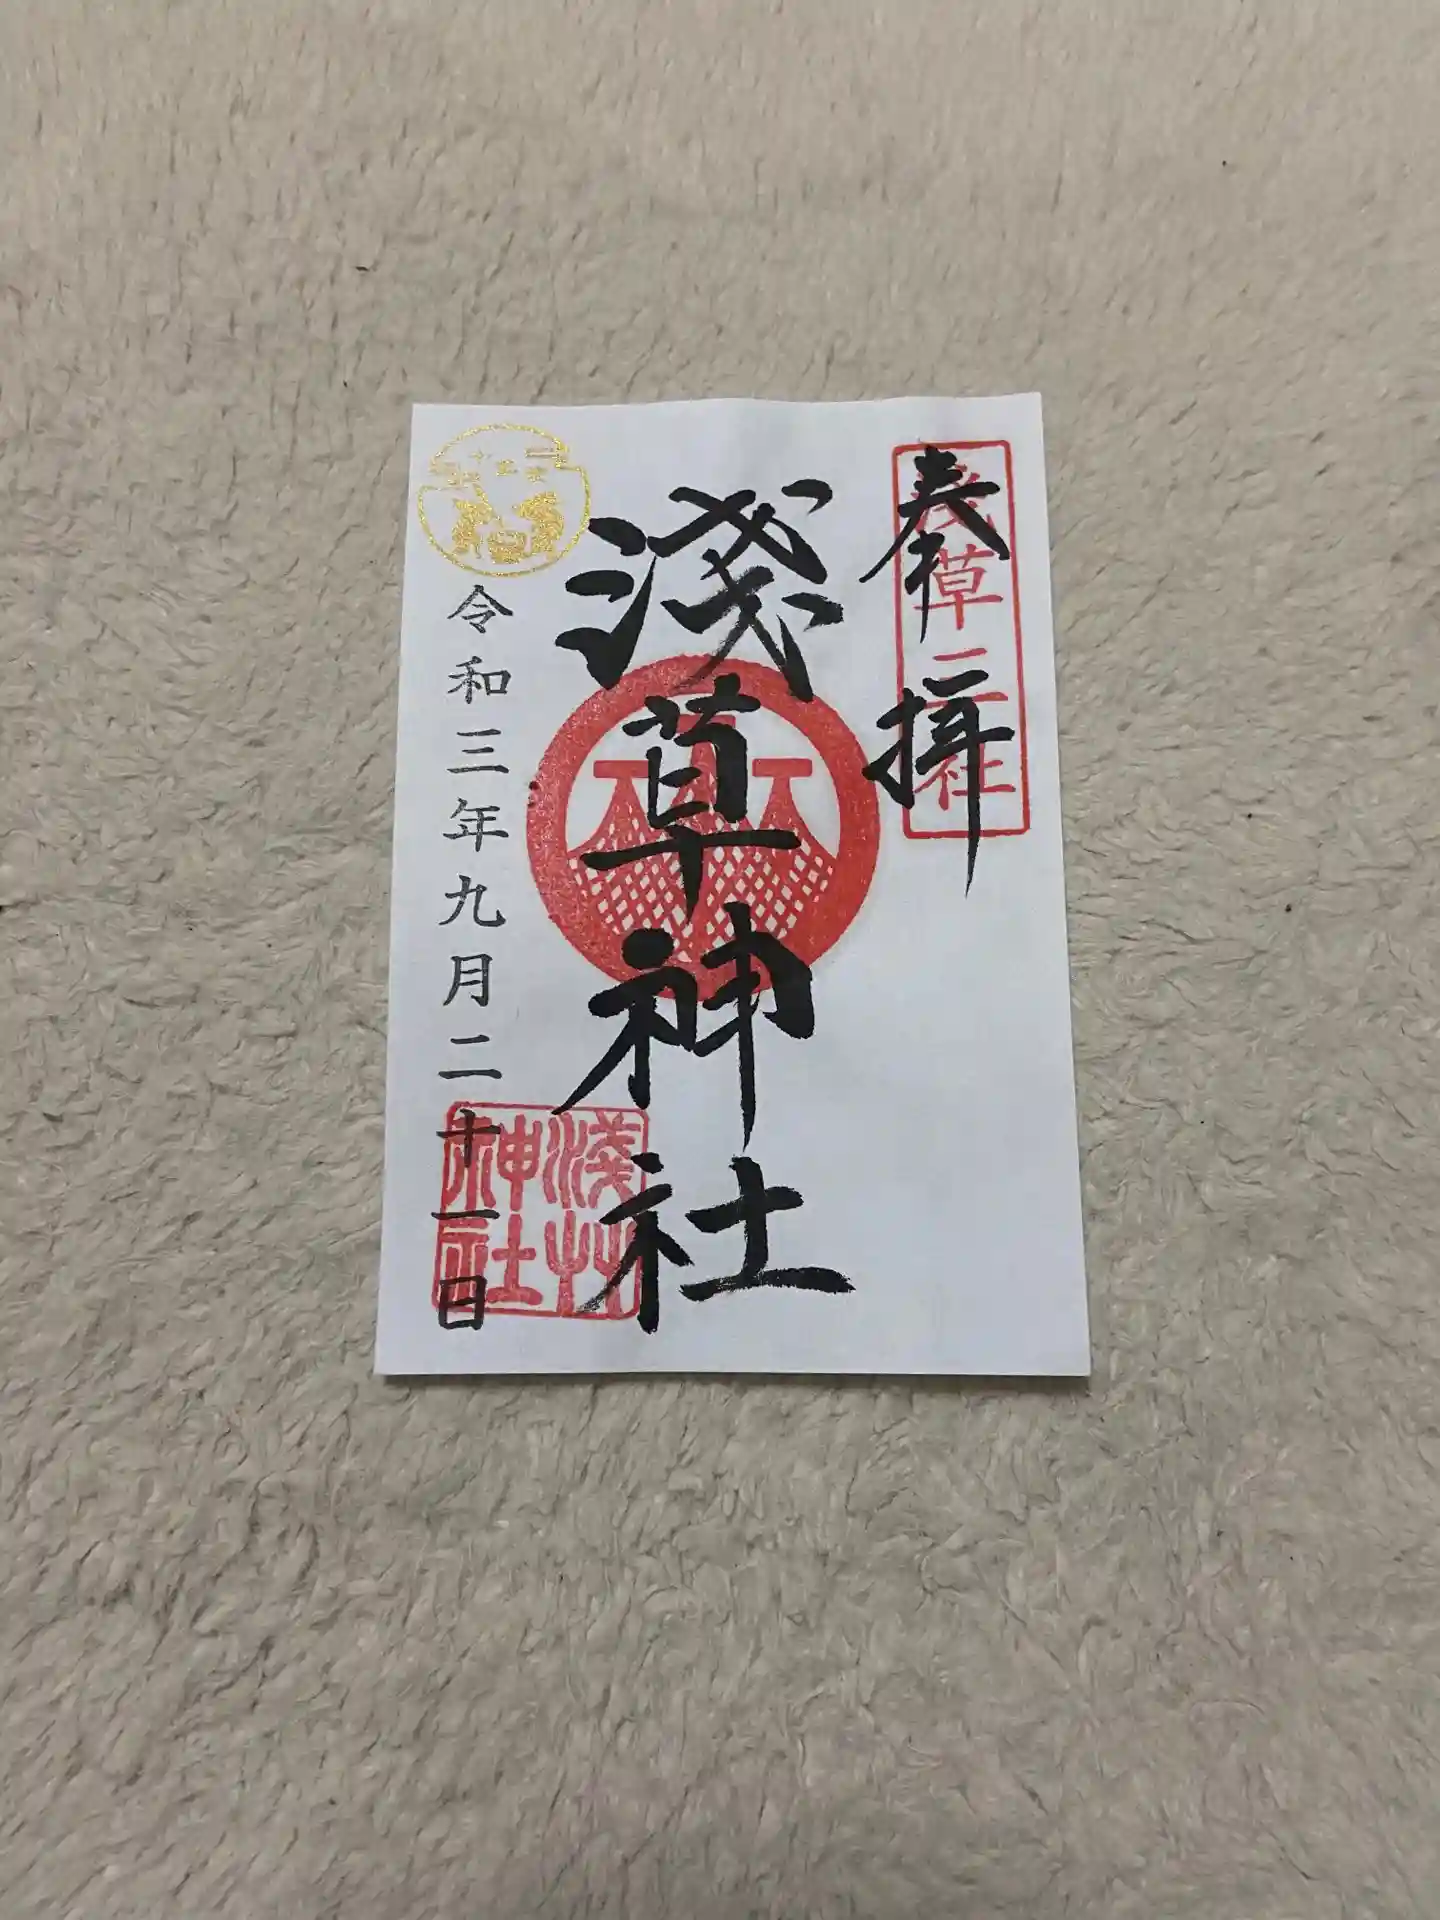 奉拝
浅草三社
淺草神社
淺草神社
令和三年九月二十一日